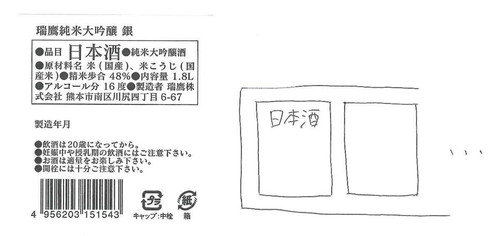 瑞鷹純米大吟醸 銀
●品目 日本酒 ●純米大吟醸酒
●原材料名 米(国産)、米こうじ(国
産米)●精米歩合 48%●内容量 1.8L
●アルコール分 16度●製造者 瑞鷹株
式会社 熊本市南区川尻四丁目6-67
製造年月
●飲酒は20歳になってから。
●妊娠中や授乳期の飲酒にはご注意下さい。
●お酒は適量をお楽しみ下さい。
●開栓には十分ご注意下さい。
プラ 紙
キャップ:中栓 箱
4 956203 151543
日本酒
...